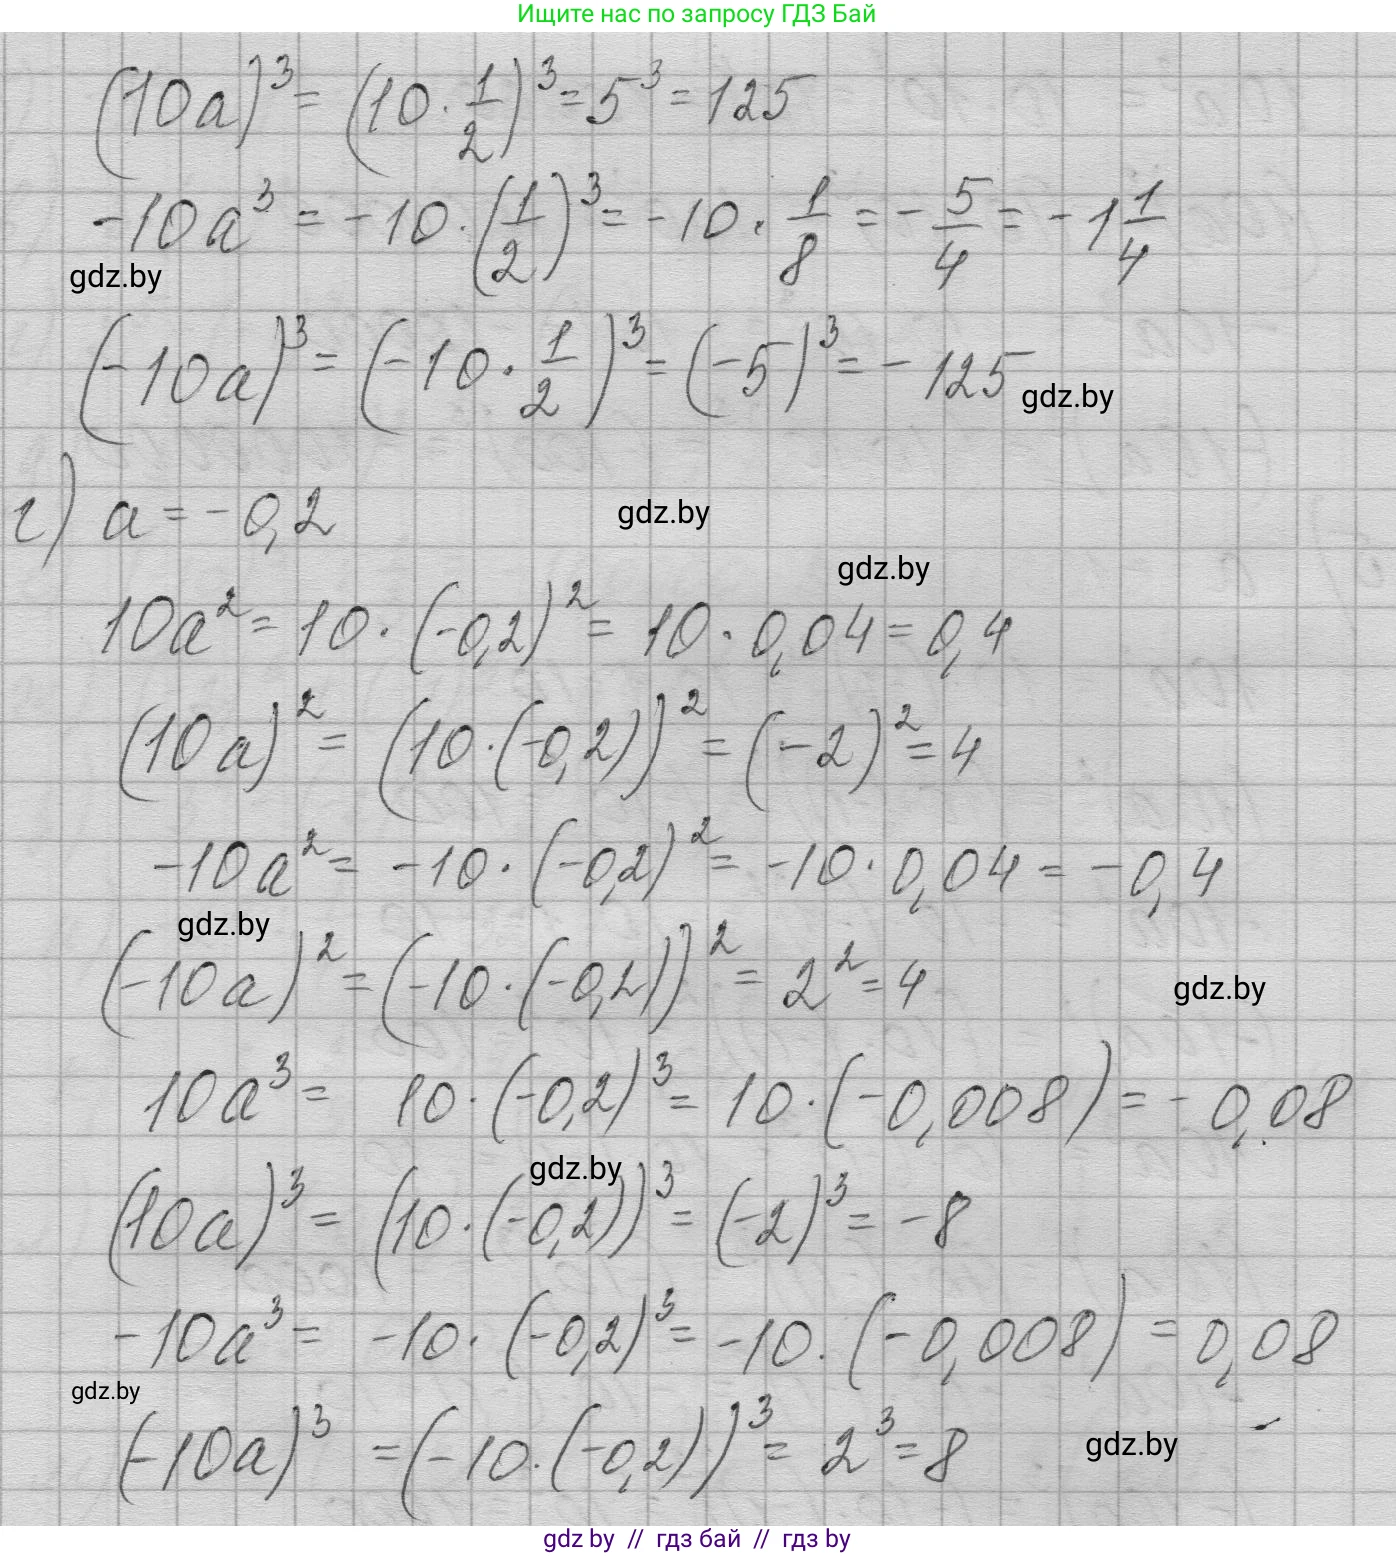 Ищите нас по запросу ГДЗ Бай
(10a)³ = (10 · 1/2)³ = 5³ = 125
-10a³ = -10 · (1/2)³ = -10 · 1/8 = -5/4 = -1 1/4
gdz.by
(-10a)³ = (-10 · 1/2)³ = (-5)³ = -125
gdz.by
г) a = -0,2
gdz.by
gdz.by
10a² = 10 · (-0,2)² = 10 · 0,04 = 0,4
(10a)² = (10 · (-0,2))² = (-2)² = 4
-10a² = -10 · (-0,2)² = -10 · 0,04 = -0,4
gdz.by
(-10a)² = (-10 · (-0,2))² = 2² = 4
gdz.by
10a³ = 10 · (-0,2)³ = 10 · (-0,008) = -0,08
gdz.by
(10a)³ = (10 · (-0,2))³ = (-2)³ = -8
-10a³ = -10 · (-0,2)³ = -10 · (-0,008) = 0,08
gdz.by
(-10a)³ = (-10 · (-0,2))³ = 2³ = 8
gdz.by
gdz by // гдз бай // гдз by